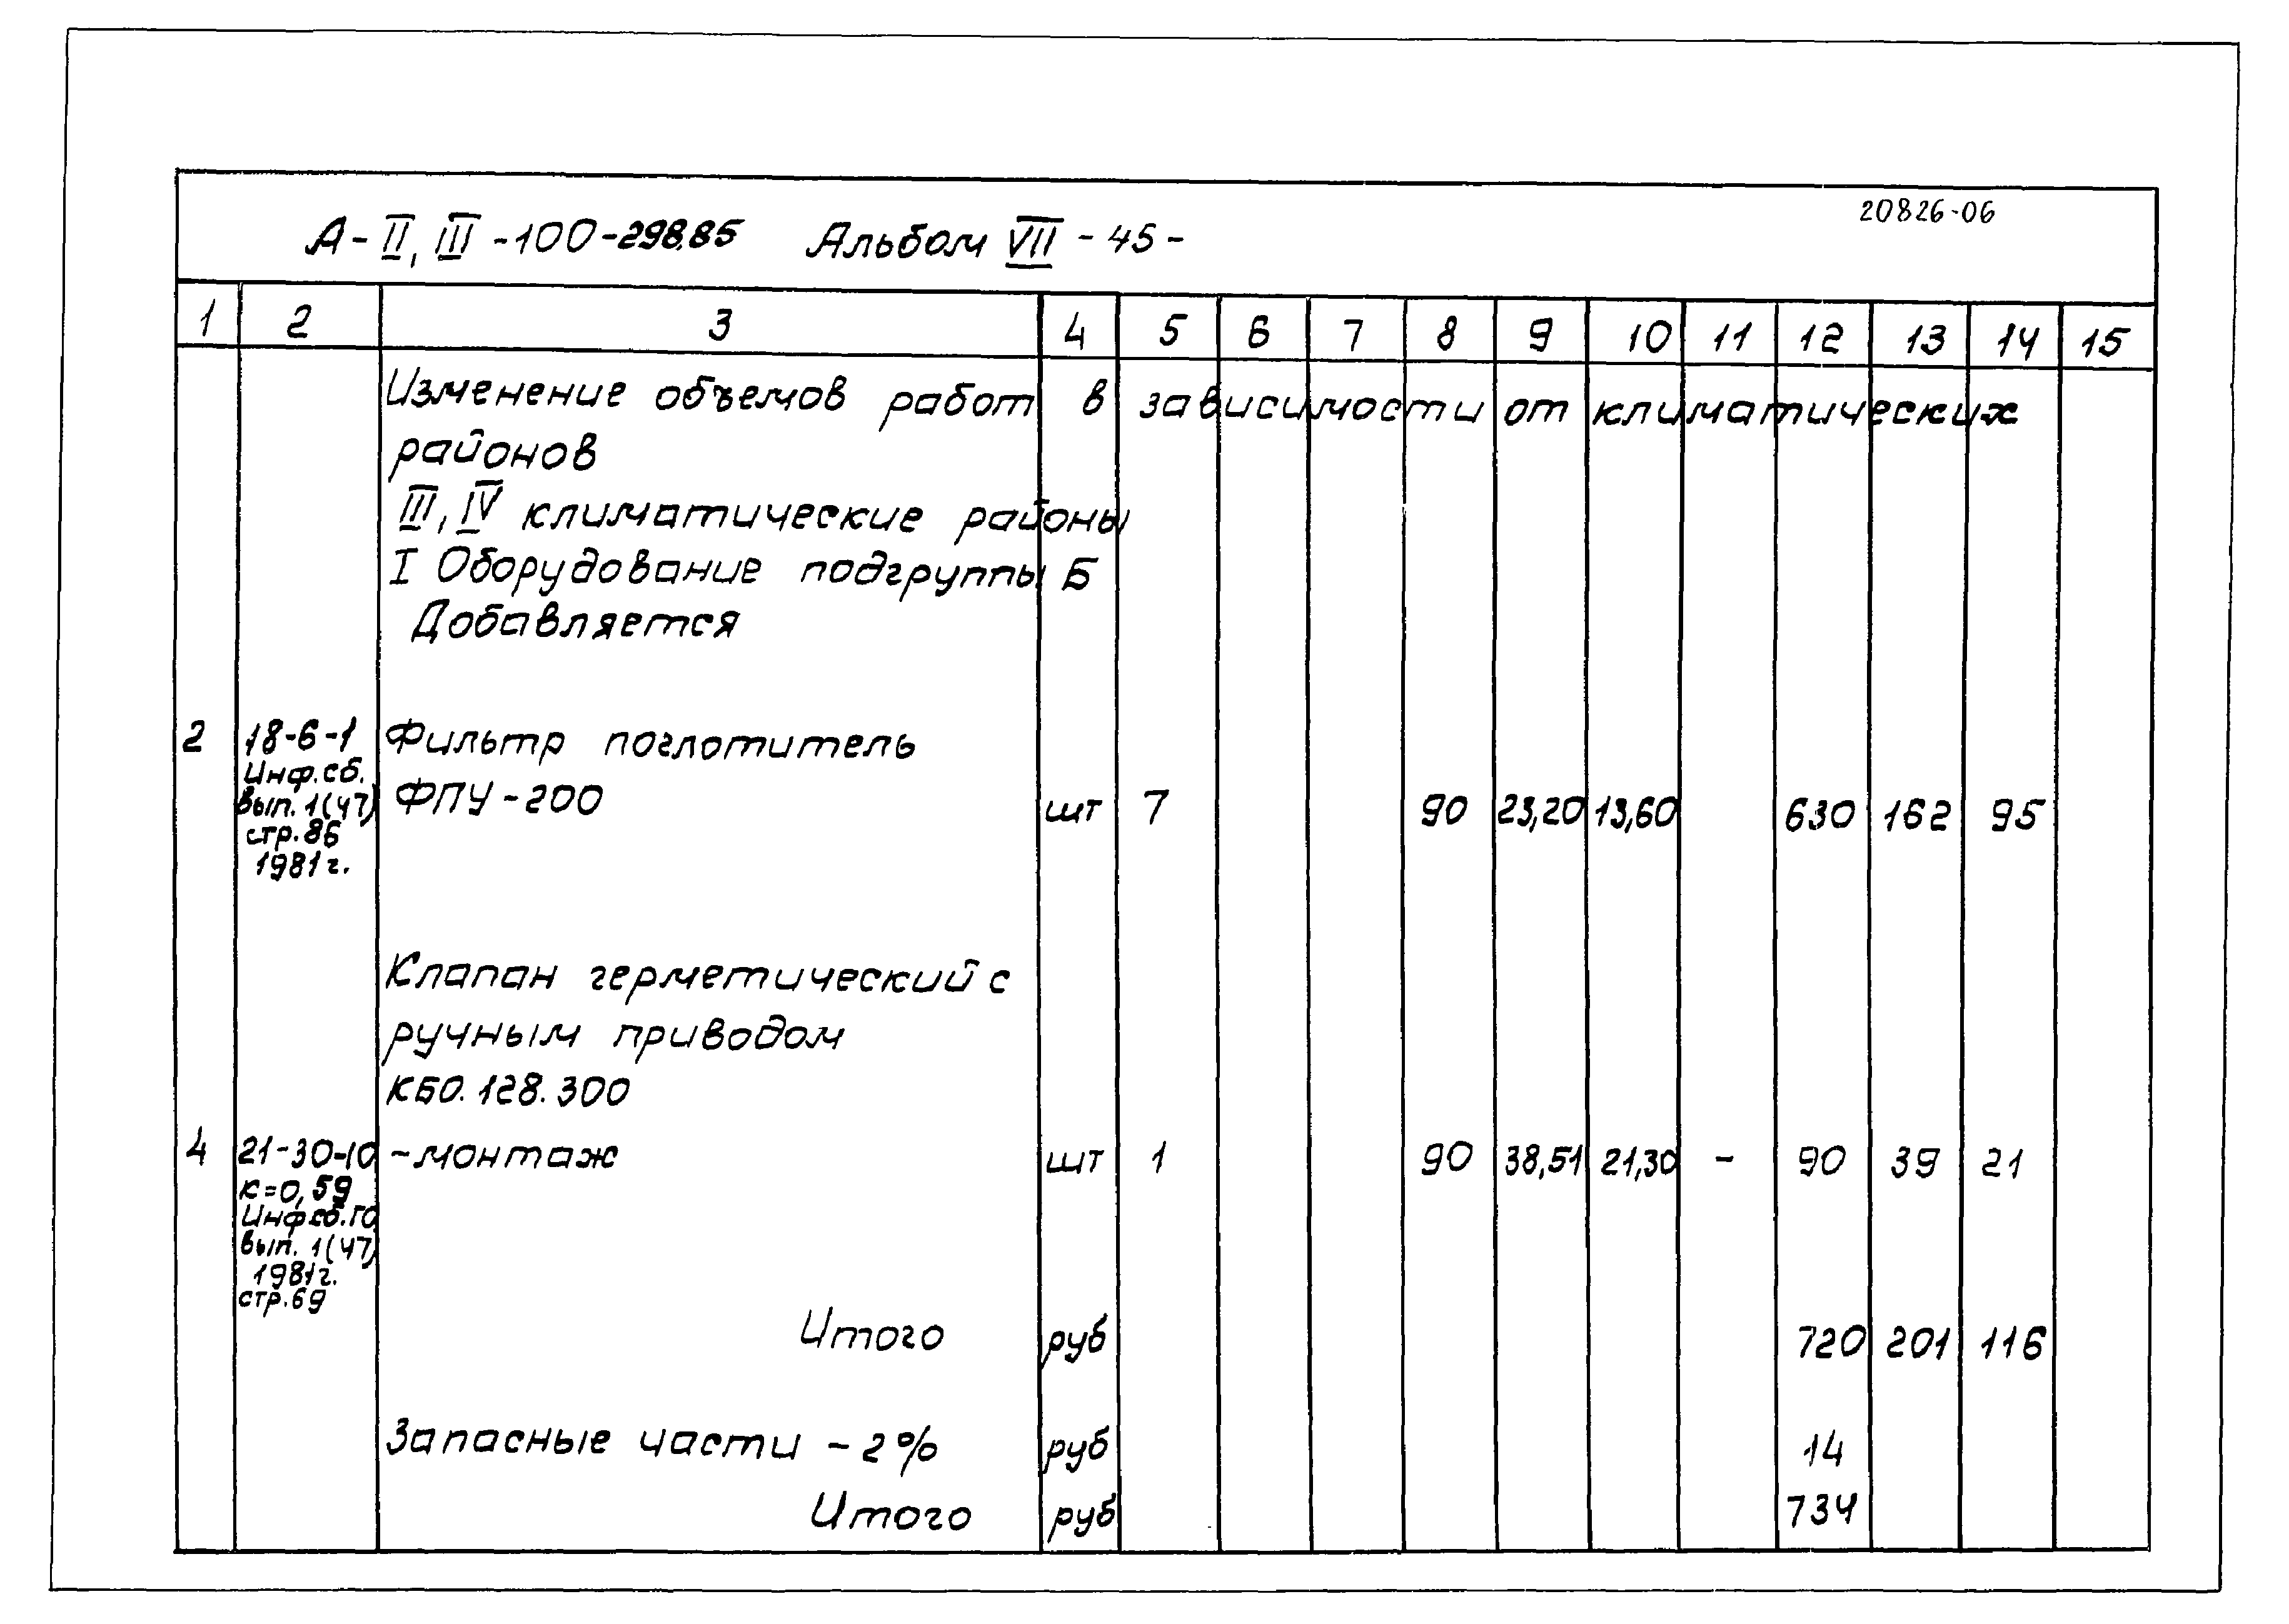 20826-06
А-II, III-100-298.85 Альбом VII -45-
1 2 3 4 5 6 7 8 9 10 11 12 13 14 15
Изменение объемов работ в зависимости от климатических
районов
III, IV климатические районы
I Оборудование подгруппы Б
Добавляется
2 18-6-1 Фильтр поглотитель
Инф.сб.
вып. 1(47) ФПУ-200 шт 7 90 23,20 13,60 630 162 95
стр.86
1981г.
Клапан герметический с
ручным приводом
КБО.128.300
4 21-30-10 -монтаж шт 1 90 38,51 21,30 - 90 39 21
к=0,59
Инф.сб.ГО
вып. 1(47)
1981г.
стр.69
Итого руб 720 201 116
Запасные части -2% руб 14
Итого руб 734